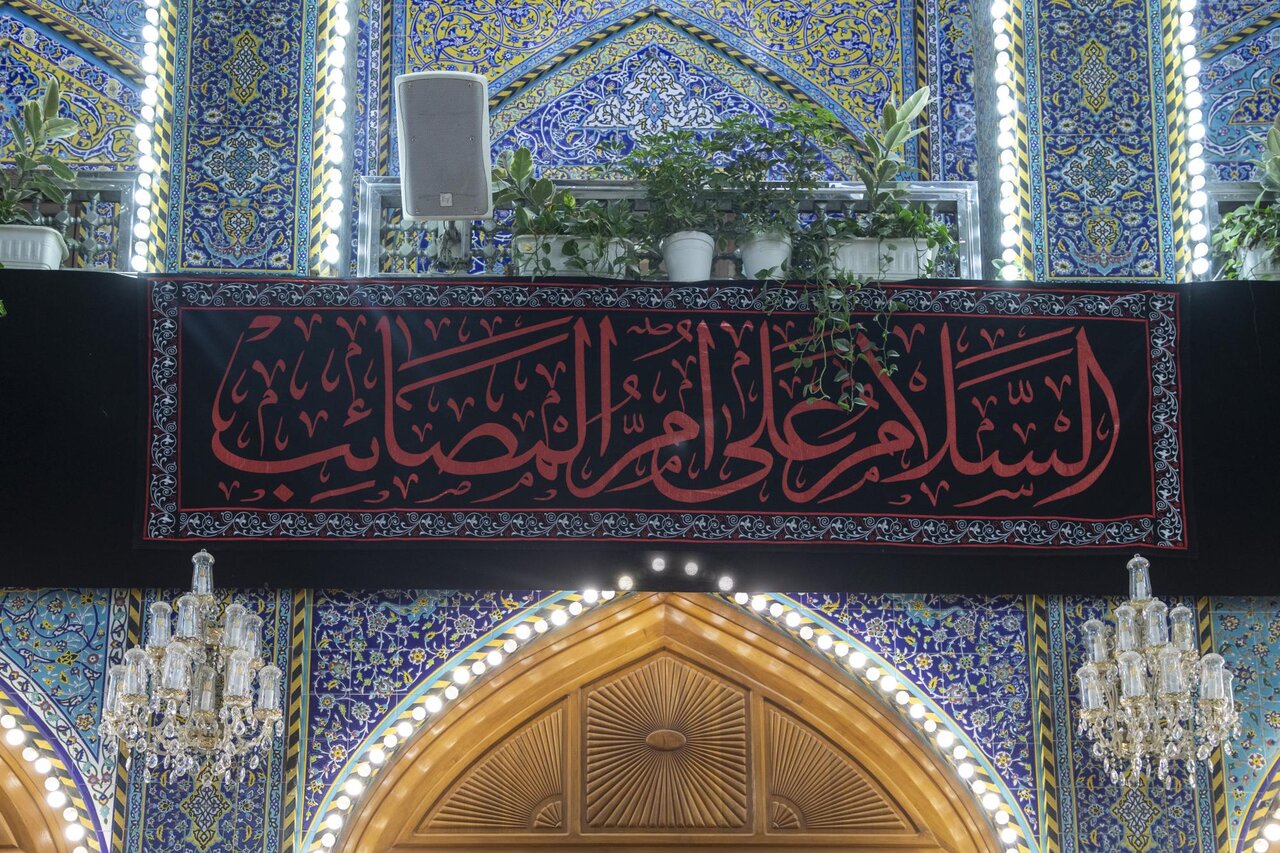 السَّلامُ عَلى أُمِّ المَصائِبْ